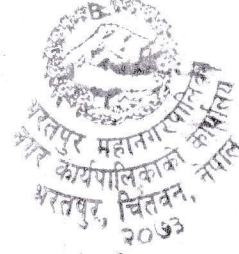 भरतपुर महानगरपालिका
नगर कार्यपालिकाको कार्यालय
भरतपुर, चितवन, नेपाल
२०७३